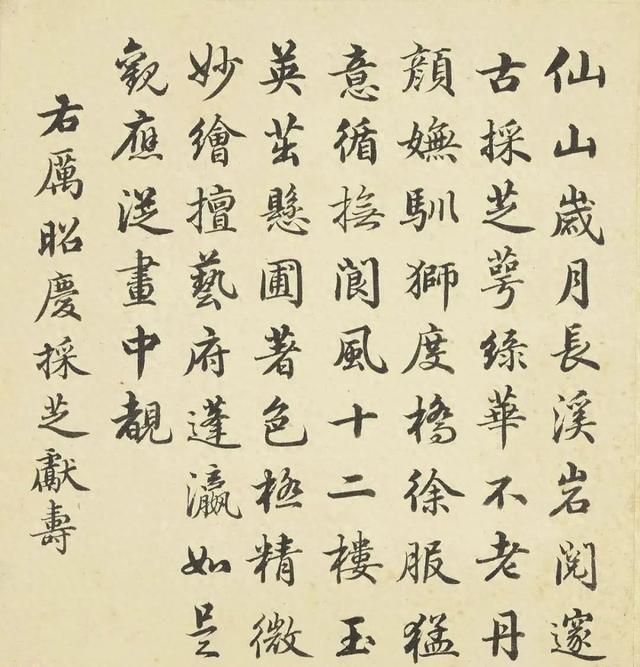 仙山歲月長溪岩閱邃
古採芝萼綠華不老丹
顏嫵馴獅度橋徐服猛
意循撫閬風十二樓玉
英茁懸圃著色極精微
妙繪擅藝府蓬瀛如是
觀應從畫中覩
右厲昭慶採芝獻壽